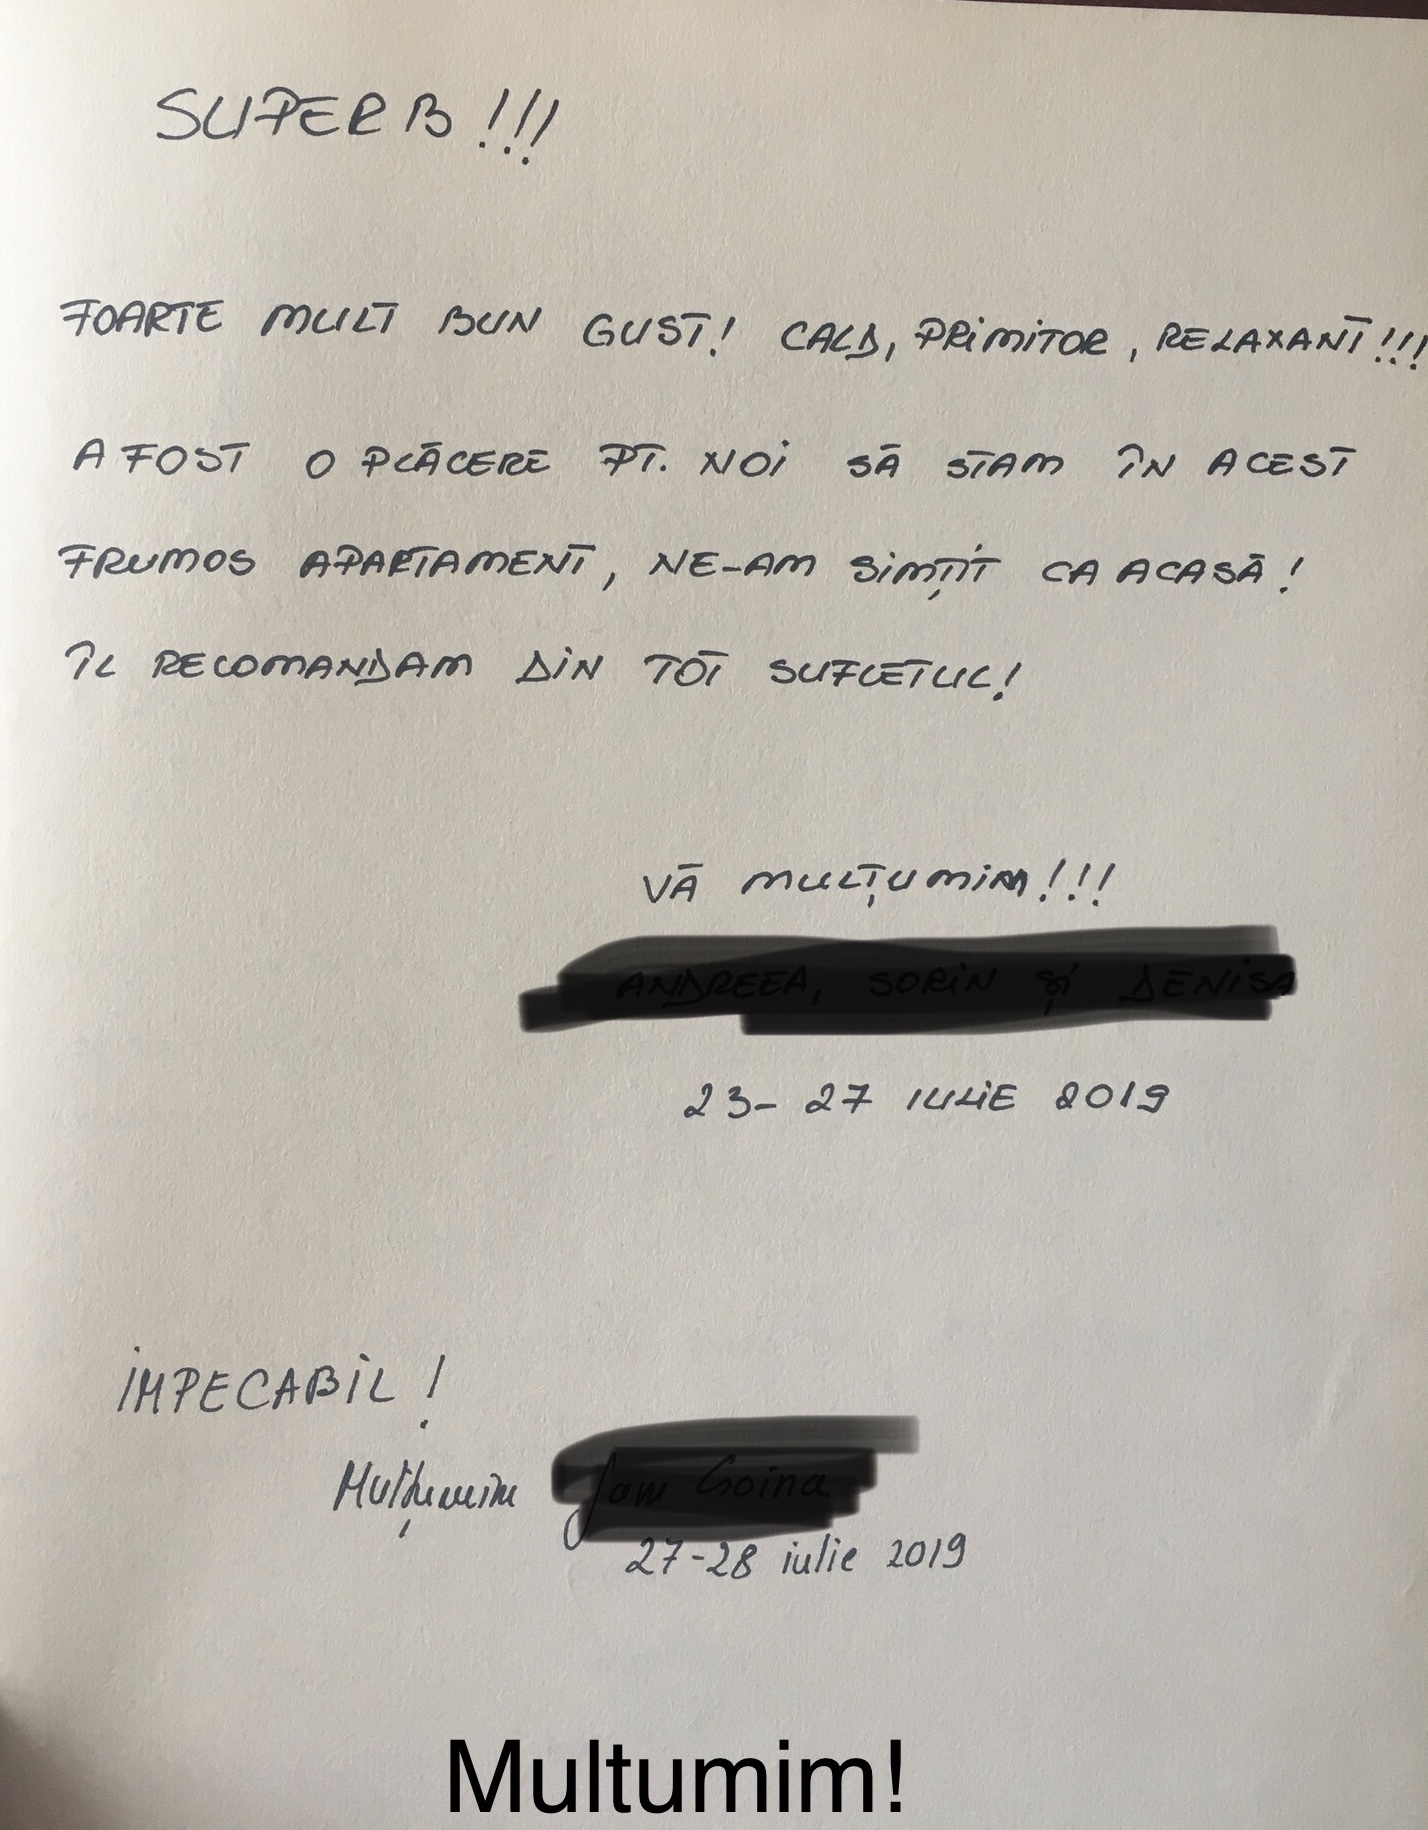 SUPERB!!!
FOARTE MULT BUN GUST! CALD, PRIMITOR, RELAXANT!!!
A FOST O PLĂCERE PT. NOI SĂ STAM ÎN ACEST
FRUMOS APARTAMENT, NE-AM SIMȚIT CA ACASĂ!
ÎL RECOMANDAM DIN TOT SUFLETUL!
VĂ MULȚUMIM!!!
23-27 IULIE 2019
IMPECABIL!
Mulțumim
27-28 iulie 2019
Multumim!